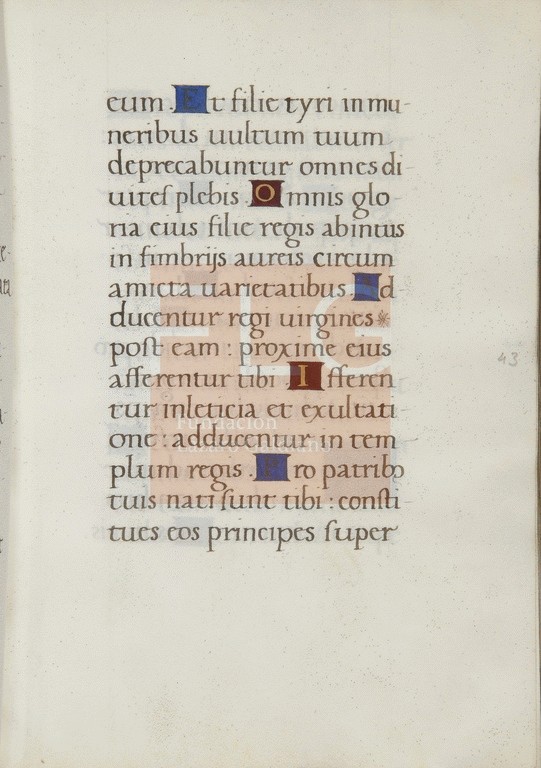 eum. Et filie tyri in mu-
neribus uultum tuum
deprecabuntur omnes di-
uites plebis. Omnis glo-
ria eius filie regis abintus
in fimbrijs aureis circum
amicta uarietatibus. Ad
ducentur regi uirgines
post eam: proxime eius
afferentur tibi. Afferen
tur in leticia et exultati-
one: adducentur in tem
plum regis. Pro patribo
tuis nati sunt tibi: consti-
tues eos principes super
43
FLG
Fundación
Lázaro Galdiano